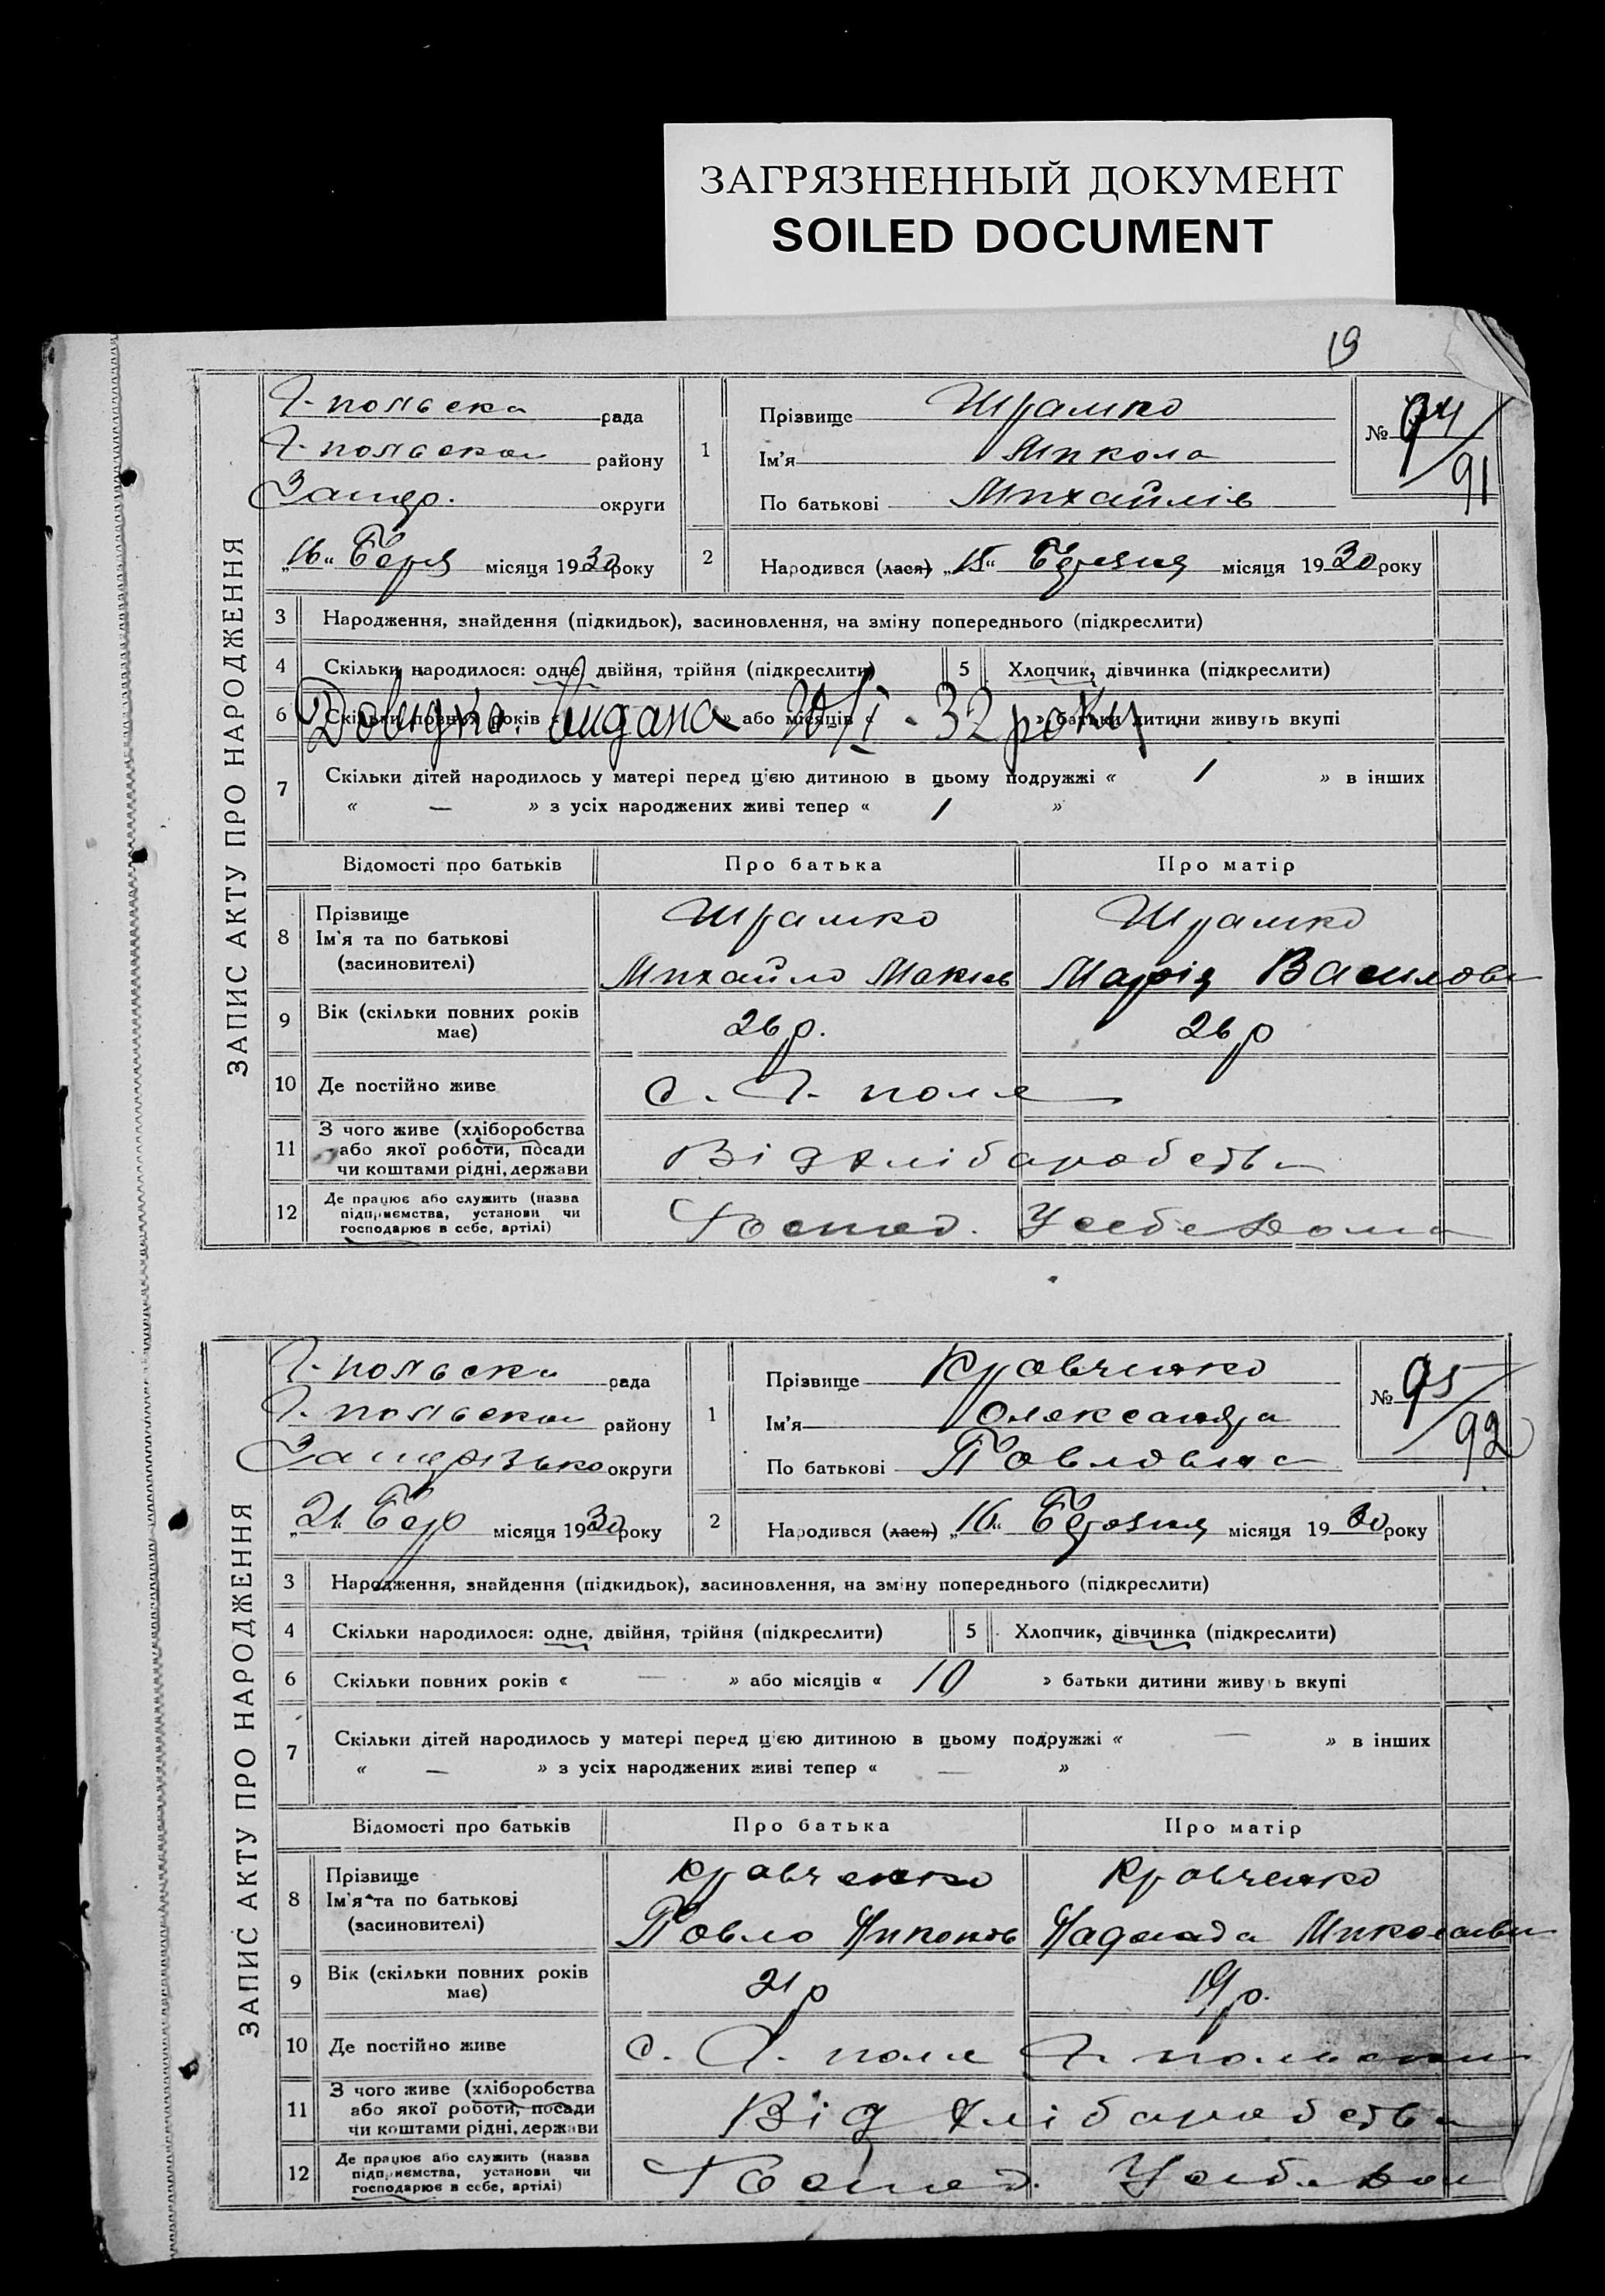 ЗАГРЯЗНЕННЫЙ ДОКУМЕНТ
SOILED DOCUMENT
19
ЗАПИС АКТУ ПРО НАРОДЖЕННЯ
рада
району
округи
„16“ місяця 1930 року
1
Прізвище Шрамко
Ім'я Микола
По батькові Михайлів
№ 94/91
2
Народився (лася) „15“ Березня місяця 1930 року
3 Народження, знайдення (підкидьок), засиновлення, на зміну попереднього (підкреслити)
4 Скільки народилося: одне, двійня, трійня (підкреслити) 5 Хлопчик, дівчинка (підкреслити)
6 Скільки повних років « » або місяців « » батьки дитини живуть вкупі
Довідка видана 20/I - 32 року
7 Скільки дітей народилось у матері перед цією дитиною в цьому подружжі « 1 » в інших
« — » з усіх народжених живі тепер « 1 »
Відомості про батьків Про батька Про матір
8 Прізвище Шрамко Шрамко
Ім'я та по батькові
(засиновителі) Михайло Марія
9 Вік (скільки повних років має) 26 р. 26 р
10 Де постійно живе с. Г. поле
11 З чого живе (хліборобства
або якої роботи, посади
чи коштами рідні, держави Від хліборобства
12 Де працює або служить (назва
підприємства, установи чи
господарює в себе, артілі) Господ. У себе дома
ЗАПИС АКТУ ПРО НАРОДЖЕННЯ
рада
району
округи
„21“ Бер місяця 1930 року
1
Прізвище Кравченко
Ім'я Олександра
По батькові Павловна
№ 95/92
2
Народився (лася) „16“ Березня місяця 1930 року
3 Народження, знайдення (підкидьок), засиновлення, на зміну попереднього (підкреслити)
4 Скільки народилося: одне, двійня, трійня (підкреслити) 5 Хлопчик, дівчинка (підкреслити)
6 Скільки повних років « — » або місяців « 10 » батьки дитини живуть вкупі
7 Скільки дітей народилось у матері перед цією дитиною в цьому подружжі « — » в інших
« — » з усіх народжених живі тепер « — »
Відомості про батьків Про батька Про матір
8 Прізвище Кравченко Кравченко
Ім'я та по батькові
(засиновителі) Павло
9 Вік (скільки повних років має) 21 р 19 р.
10 Де постійно живе с. Г. поле
11 З чого живе (хліборобства
або якої роботи, посади
чи коштами рідні, держави Від хліборобства
12 Де працює або служить (назва
підприємства, установи чи
господарює в себе, артілі) Господ. У себе